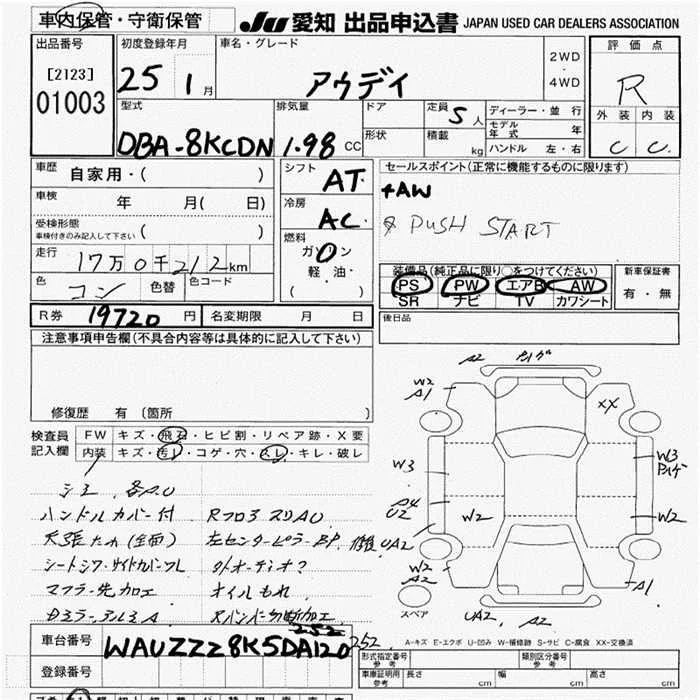 車内保管・守衛保管
JU 愛知 出品申込書 JAPAN USED CAR DEALERS ASSOCIATION
出品番号
[2123]
01003
初度登録年月
25 1月
車名・グレード
アウディ
2WD
・
4WD
評価点
R
外装 内装
C C
型式
DBA-8KCDN
排気量
1.98 CC
ドア
形状
定員 5人
積載 kg
ディーラー・並行
モデル年式 年
ハンドル 左・右
車歴 自家用・( )
車検 年 月( 日)
受検形態
車検付きのみ記入して下さい ( )
走行 17万0千212km
色 コン 色替 色コード
シフト AT
冷房 AC
燃料
ガソリン
軽油・
( )
セールスポイント(正常に機能するものに限ります)
+AW
PUSH START
装備品(純正品に限り○をつけてください)
PS PW エアB AW
SR ナビ TV カワシート
新車保証書
有・無
R券 19720円 名変期限 月 日
後日品
注意事項申告欄(不具合内容等は具体的に記入して下さい)
修復歴 有 〔箇所 〕
検査員記入欄
FW キズ・飛石・ヒビ割・リペア跡・X要
内装 キズ・汚レ・コゲ・穴・スレ・キレ・破レ
ハンドルカバー付
天張たれ(全面)
シートシワ・サイドカバーワレ
マフラー先加工
左センターピラーBP
外オーディオ?
オイルもれ
A2
W2
A1
XX
W3
W3
A4
U2
W2
W2
UA2
W2
A2
A1
UA2 A2
スペア
A-キズ E-エクボ U-凹み W-補修跡 S-サビ C-腐食 XX-交換済
車台番号 WAUZZZ8K5DA120252
252
登録番号
形式指定番号 参考
類別区分番号 参考
車庫証明用 参考 長さ cm 幅 cm 高さ cm